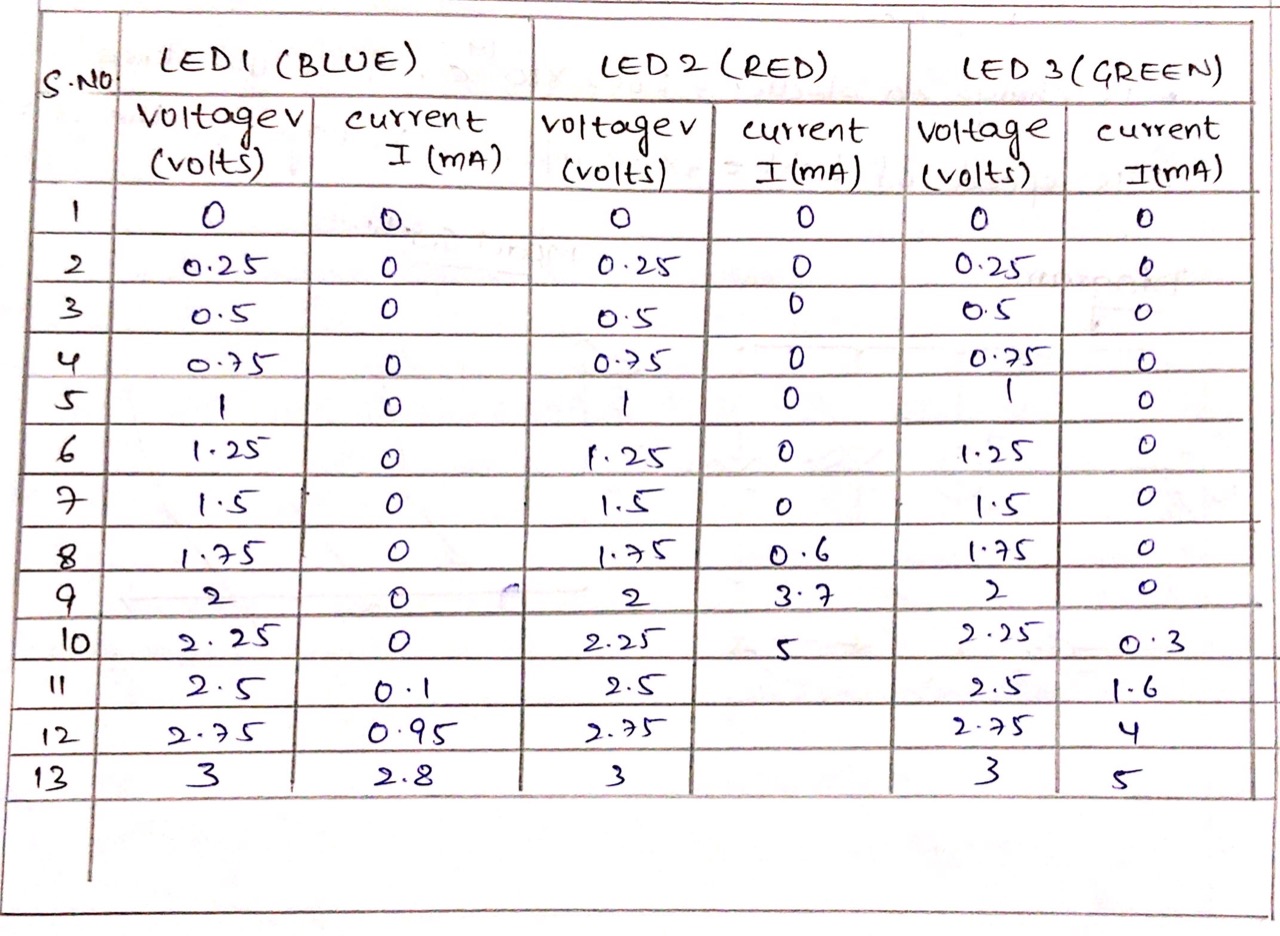 S.NO. LED1 (BLUE) LED 2 (RED) LED 3 (GREEN)
voltage v current voltage v current voltage current
(volts) I (mA) (volts) I (mA) (volts) I(mA)
1 0 0. 0 0 0 0
2 0.25 0 0.25 0 0.25 0
3 0.5 0 0.5 0 0.5 0
4 0.75 0 0.75 0 0.75 0
5 1 0 1 0 1 0
6 1.25 0 1.25 0 1.25 0
7 1.5 0 1.5 0 1.5 0
8 1.75 0 1.75 0.6 1.75 0
9 2 0 2 3.7 2 0
10 2.25 0 2.25 5 2.25 0.3
11 2.5 0.1 2.5 2.5 1.6
12 2.75 0.95 2.75 2.75 4
13 3 2.8 3 3 5